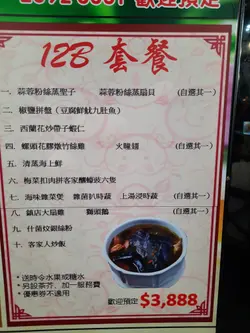 2892 0001 歡迎預定
12B 套餐
一、蒜蓉粉絲蒸聖子 蒜蓉粉絲蒸扇貝 (自選其一)
二、椒鹽拼盤(豆腐鮮魷九肚魚)
三、西蘭花炒帶子蝦仁
四、螺頭花膠燉竹絲雞 火瞳翅 (自選其一)
五、清蒸海上鮮
六、梅菜扣肉拼客家釀蠔豉六隻
七、海味雜菜煲 雜菌扒時蔬 上湯浸時蔬 (自選其一)
八、鎮店大扇雞 獅頭鵝 (自選其一)
九、什菌炆銀絲粉
十、客家人炒飯
*送時令水果或糖水
*另設茶芥、加一服務費
*優惠券不適用
歡迎預定 $3,888